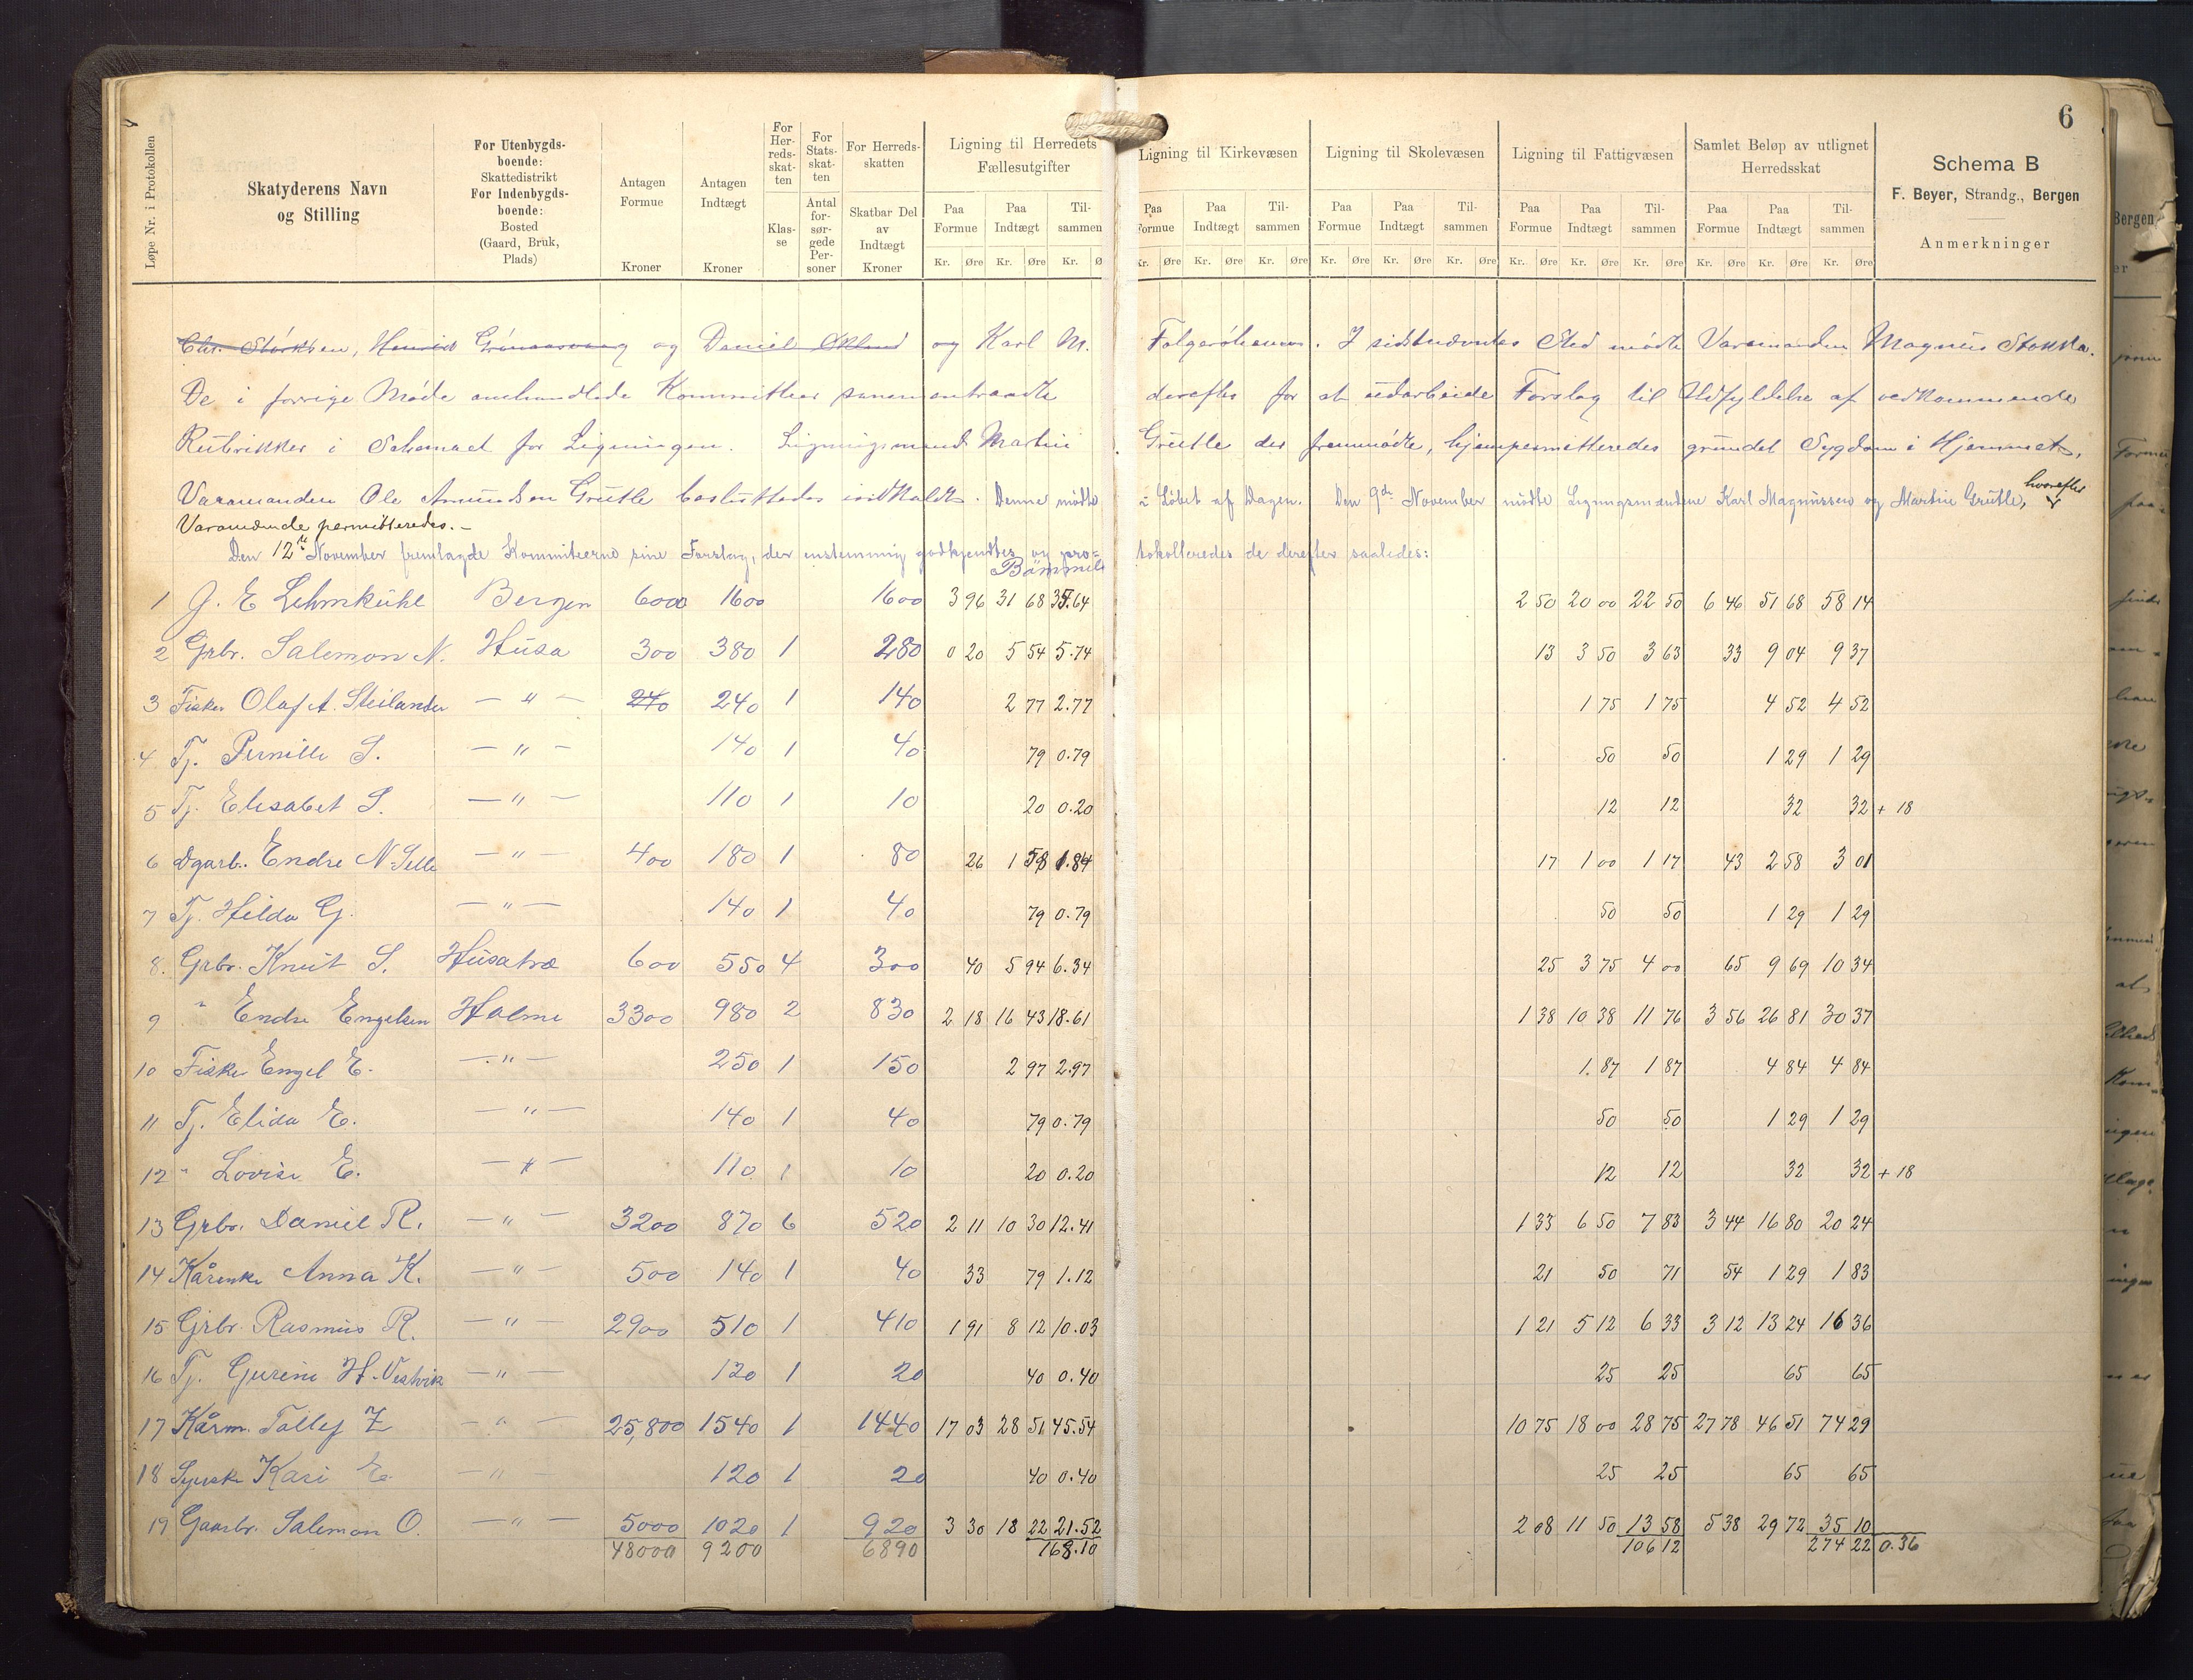 6
Løpe Nr. i Protokollen
Skatyderens Navn og Stilling
For Utenbygdsboende: Skattedistrikt For Indenbygdsboende: Bosted (Gaard, Bruk, Plads)
Antagen Formue Kroner
Antagen Indtægt Kroner
For Herredsskatten Klasse
For Statsskatten Antal forsørgede Personer
For Herredsskatten Skatbar Del av Indtægt Kroner
Ligning til Herredets Fællesutgifter
Paa Formue Paa Indtægt Tilsammen
Kr. Øre Kr. Øre Kr. Ø
Ligning til Kirkevæsen
Paa Formue Paa Indtægt Tilsammen
Kr. Øre Kr. Øre Kr. Øre
Ligning til Skolevæsen
Paa Formue Paa Indtægt Tilsammen
Kr. Øre Kr. Øre Kr. Øre
Ligning til Fattigvæsen
Paa Formue Paa Indtægt Tilsammen
Kr. Øre Kr. Øre Kr. Øre
Samlet Beløp av utlignet Herredsskat
Paa Formue Paa Indtægt Tilsammen
Kr. Øre Kr. Øre Kr. Øre
Schema B
F. Beyer, Strandg., Bergen
Anmerkninger
Chr. Størksen, Henrik og Daniel Økland og Karl M. Folgerøhavn. I sidstnævntes Sted mødte Varamanden Magnus Stokka.
De i forrige Møde omhandlede Kommitteer sammentraadte derefter for at udarbeide Forslag til Udfyldelse af vedkommende
Rubrikker i Schemaet for Ligningen. Ligningsmand Martin Grutle der fremmødte, hjempermitteredes grundet Sygdom i Hjemmet,
Varamanden Ole Amundsen Grutle besluttedes indkaldt. Denne mødte i Løbet af Dagen. Den 9de November mødte Ligningsmændene Karl Magnussen og Martin Grutle, hvorefter
Varamændende permitteredes. -
Den 12te November fremlagde Kommiteerne sine Forslag, der enstemmig godkjendtes og pro= tokolleredes de derefter saaledes:
Bömmel
1 J. E Lehmkuhl Bergen 6000 1600 1600 3 96 31 68 35.64 2 50 20 00 22 50 6 46 51 68 58 14
2 Grbr. Salemon N. Husa 300 380 1 280 0 20 5 54 5.74 13 3 50 3 63 33 9 04 9 37
3 Fisker Olaf A. Steilander - " - 240 240 1 140 2 77 2.77 1 75 1 75 4 52 4 52
4 Tj. Pernille S. - " - 140 1 40 79 0.79 50 50 1 29 1 29
5 Tj. Elisabet S. - " - 110 1 10 20 0.20 12 12 32 32 + 18
6 Dgarb. Endre N. Selle - " - 400 180 1 80 26 1 58 1.84 17 1 00 1 17 43 2 58 3 01
7 Tj. Hilda G. - " - 140 1 40 79 0.79 50 50 1 29 1 29
8. Grbr. Knut S. Husatræ 600 550 4 300 40 5 94 6.34 25 3 75 4 00 65 9 69 10 34
9 " Endre Engelsen Holme 3300 980 2 830 2 18 16 43 18.61 1 38 10 38 11 76 3 56 26 81 30 37
10 Fisker Engel E. - " - 250 1 150 2 97 2.97 1.87 1 87 4 84 4 84
11 Tj. Elida E. - " - 140 1 40 79 0.79 50 50 1 29 1 29
12 " Lovise E. - " - 110 1 10 20 0.20 12 12 32 32 + 18
13 Grbr. Daniel R. - " - 3200 870 6 520 2 11 10 30 12.41 1 33 6 50 7 83 3 44 16 80 20 24
14 Kårenke Anna K. - " - 500 140 1 40 33 79 1.12 21 50 71 54 1 29 1 83
15 Grbr. Rasmus R. - " - 2900 510 1 410 1 91 8 12 10.03 1 21 5 12 6 33 3 12 13 24 16 36
16 Tj. Gurine H. Vestvik - " - 120 1 20 40 0.40 25 25 65 65
17 Kårm. Tollef Z - " - 25,800 1540 1 1440 17 03 28 51 45.54 10 75 18 00 28 75 27 78 46 51 74 29
18 Syerske Kari E. - " - 120 1 20 40 0.40 25 25 65 65
19 Gaarbr. Salemon O. - " - 5000 1020 1 920 3 30 18 22 21.52 2 08 11 50 13 58 5 38 29 72 35 10
48000 9200 6890 168.10 106 12 274 22 0.36